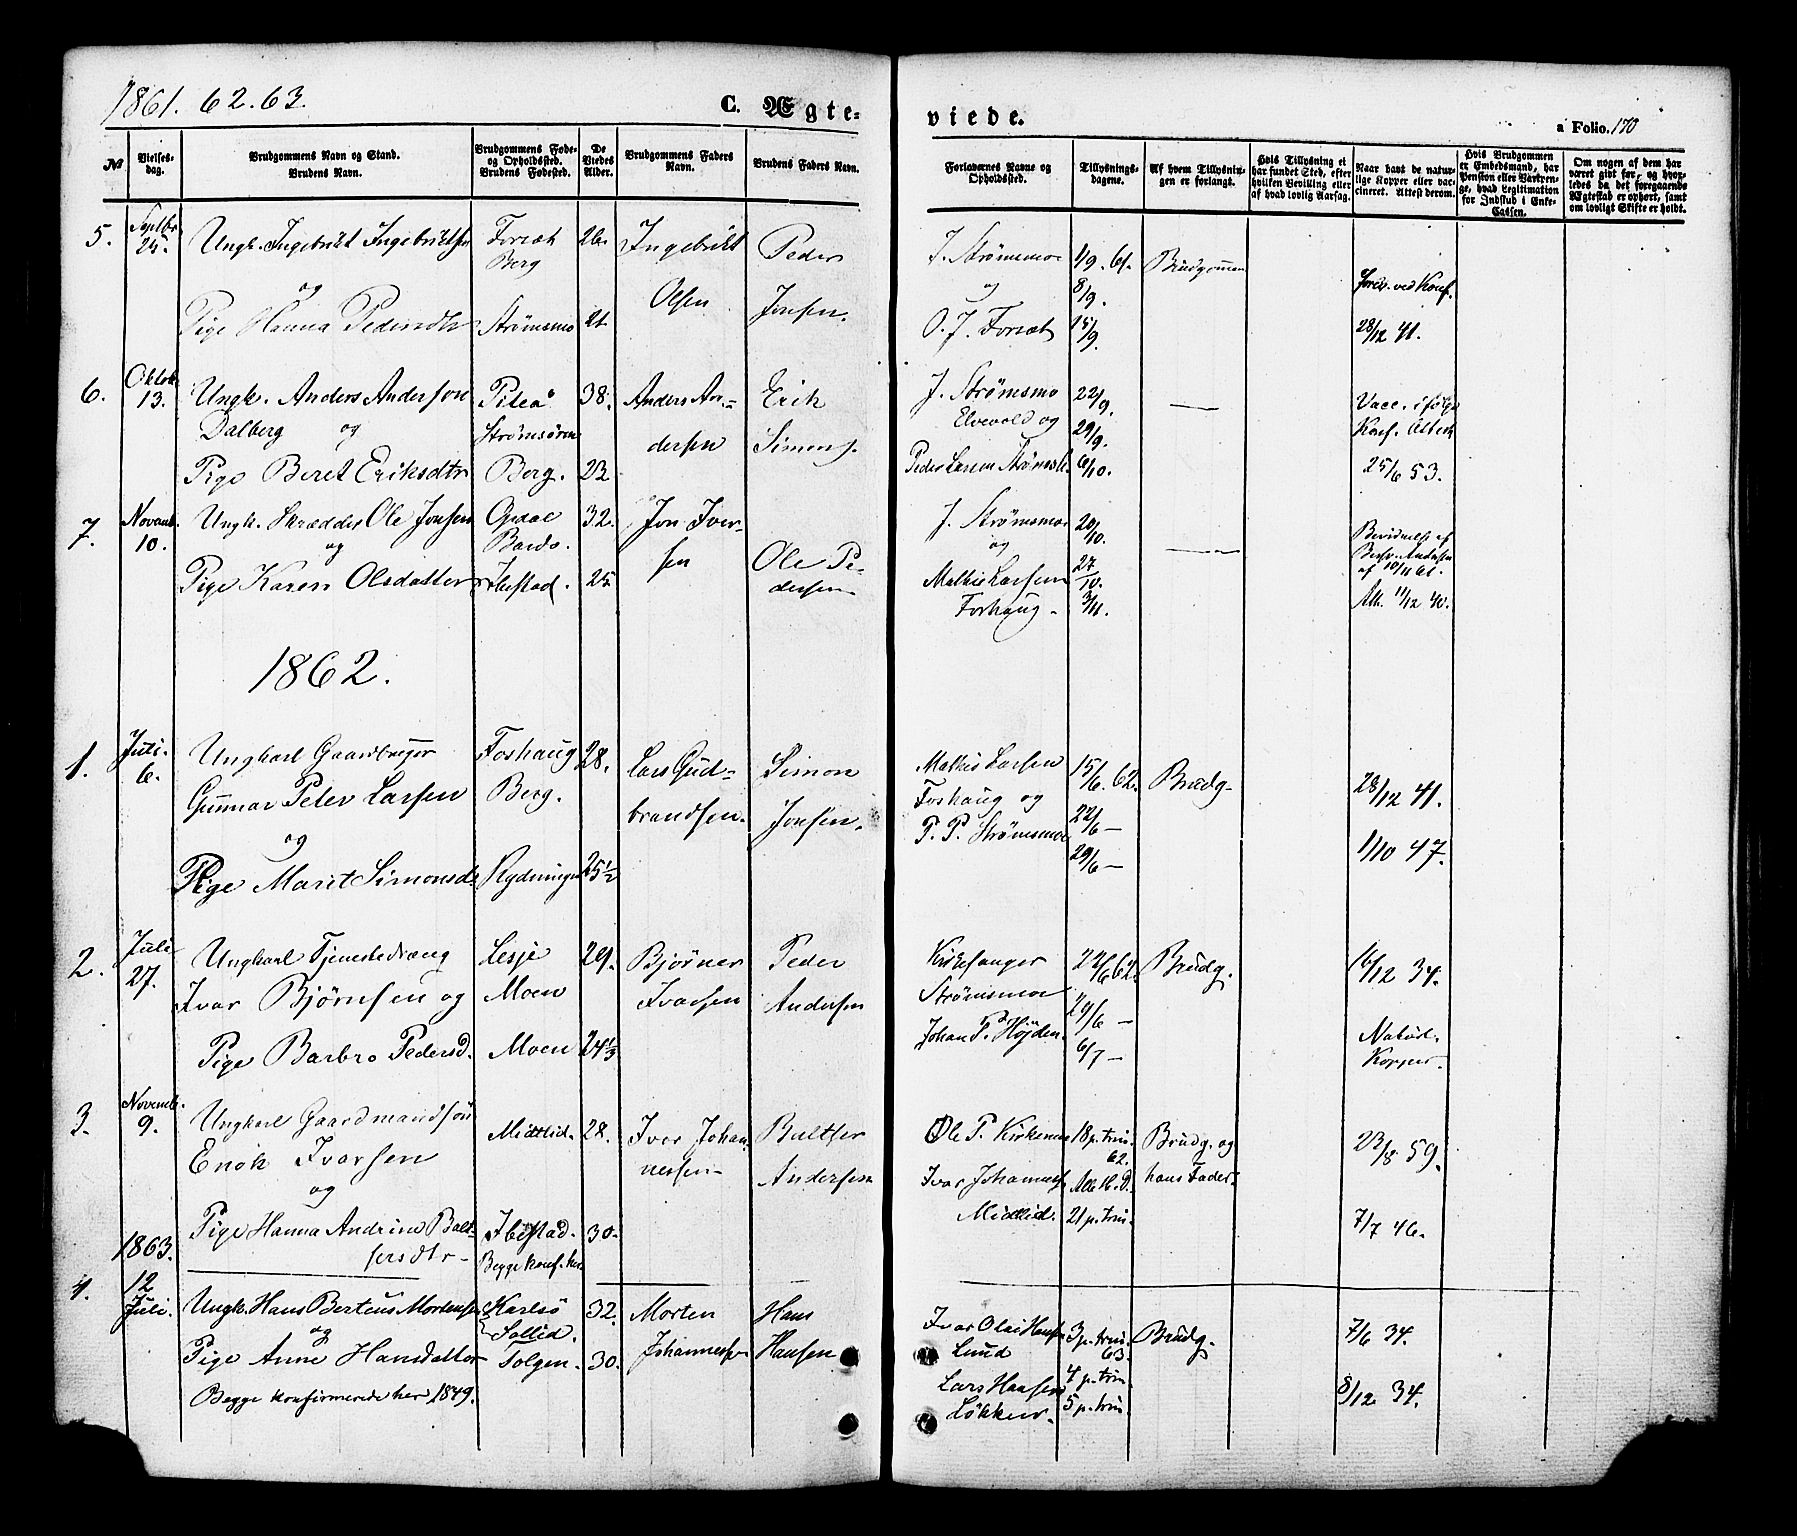 1861. 62. 63.
C. Ægte-
viede.
a Folio. 170
No
Vielses-
dag.
Brudgommens Navn og Stand.
Brudens Navn.
Brudgommens Føde-
og Opholdssted.
Brudens Fødested.
De
Viedes
Alder.
Brudgommens Faders
Navn.
Brudens Faders Navn.
Forlovernes Navne og
Opholdssted.
Tillysnings-
dagene.
Af hvem Tillysnin-
gen er forlangt.
Hvis Tillysning ei
har fundet Sted, efter
hvilken Bevilling eller
af hvad lovlig Aarsag.
Naar havt de natur-
lige Kopper eller vac-
cineret. Attest derom.
Hvis Brudgommen
er Embedsmand, har
Pension eller Vartpen-
ge, hvad Legitimation
for Indskud i Enke-
Cassen.
Om nogen af dem har
været gift før, og hvor-
ledes da det foregaaende
Ægteskab er ophørt, samt
om lovligt Skifte er holdt.
5.
Septbr
25.
Ungk. Ingebrikt Ingebriktsen
og
Pige Hanna Pedersdtr
Berg
Strømsmo
26.
21.
Ingebrikt
Olsen
Peder
Jonsen.
J. Strømsmo
og
O. J.
1/9. 61.
8/9.
15/9.
Brudgommen
ved Konf.
28/12 41.
6.
Oktob.
13.
Ungk. Anders Anderson
Dalberg og
Pige Beret Eriksdtr
Piteå
Strømsøren
Berg.
38.
23
Anders An-
dersen
Erik
Simons.
J. Strømsmo
Elvevold og
Peder Larsen
22/9.
29/9.
6/10.
Vacc. ifølge
Konf. Attest
25/6 53.
7.
Novemb.
10.
Ungk. Skrædder Ole Jonsen
og
Pige Karen Olsdatter
Opdal
Bardo.
Ibestad.
32.
25
Jon Iver-
sen
Ole Pe-
dersen
J. Strømsmo
og
Mathis Larsen
Foshaug
20/10.
27/10.
3/11.
af 10/11 61.
Att. 11/12 40.
1862.
1.
Juli.
6.
Ungkarl Gaardbruger
Gunnar Peter Larsen
og
Pige Marit Simonsd.
Foshaug
Berg.
Rydningen
28.
25½
Lars Gud-
brandsen.
Simon
Jonsen.
Mathis Larsen
Foshaug og
P. P. Strømsmo
15/6. 62.
22/6 —
29/6 —
Brudg.
28/12 41.
1/10 47.
2.
Juli
27.
Ungkarl Tjenestedreng
Ivar Bjørnsen og
Pige Barbro Pedersd.
Lesje
Moen
Moen
29.
24⅓
Bjørner
Ivarsen
Peder
Andersen
Kirkesanger
Strømsmo
Johan P. Højden.
24/6 62.
29/6 —
6/7 —
Brudg.
16/12 34.
Naturl.
Kopper.
3.
Novemb.
9.
Ungkarl Gaardmandsøn
Enok Ivarsen
og
Pige Hanna Andrine Balt-
sersdtr
Midtlid.
Ibestad.
Begge konf. her
28.
30.
Ivar Johan-
nessen
Baltser
Andersen
Ole P. Kirkemo
Ivar Johanness.
Midtlid.
18 p. trin.
62.
21 p. trin.
Brudg. og
hans Fader.
23/8 59.
7/7 46.
1863.
4.
12
Juli.
Ungk. Hans Berteus Mortensen
og
Pige Anne Hansdatter
Begge konfirmerede her 1849.
Karlsø
Sollid.
Tolgen.
32.
30.
Morten
Johannessen
Hans
Hansen
Ivar Olai Hansen
Lund
Lars Hansen
Løkken.
3 p. trin.
63.
4 p. trin.
5 p. trin.
Brudg.
7/6 34.
8/12 34.